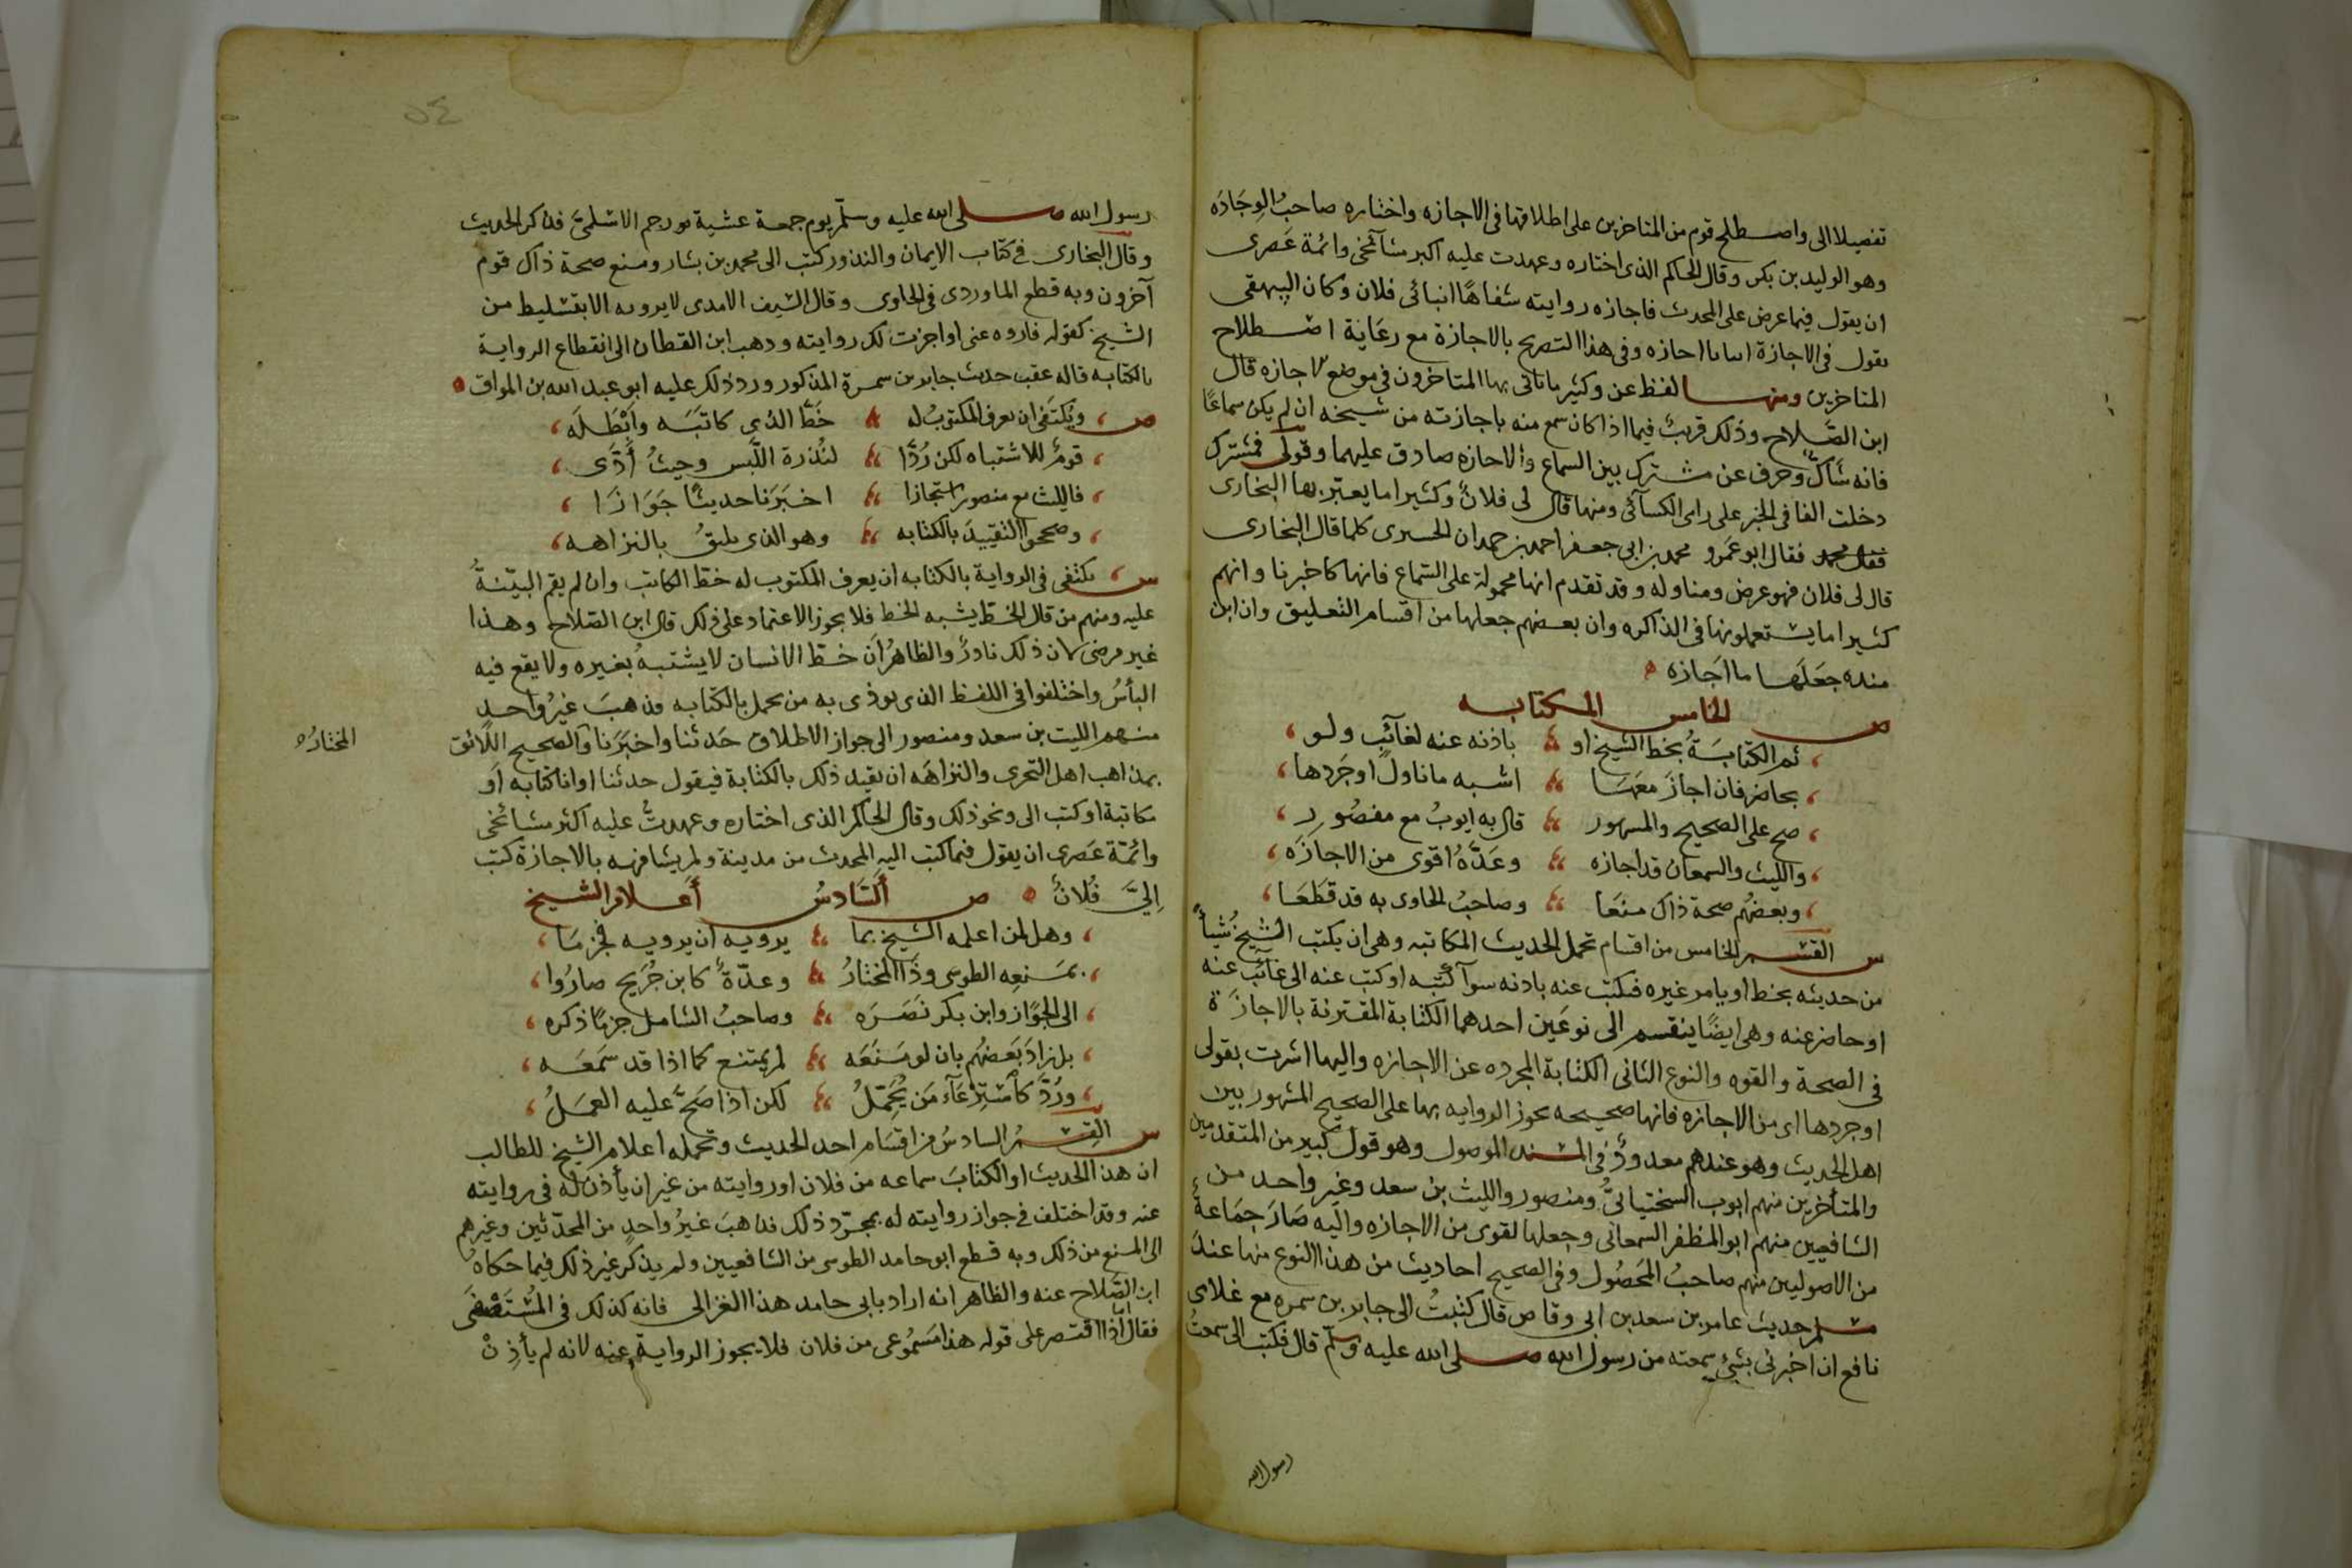 تفصيلا الى واصطلح قوم من المتاخرين على اطلاقها فى الاجازه واختاره صاحبُ الوِجَادَه
وهو الوليد بن بكر وقال الحاكم الذى اختاره وعهدت عليه اكبر مشآئخى وائمة عَصرى
ان يقول فيما عرض على المحدث فاجازه روايته شفاهًا انبائى فلان وكان البيهقى
يقول فى الاجازة انبانا اجازه وفى هذا التصريح بالاجازة مع رعَاية اصطلاح
المتاخرين ومنها لفظ عن وكثير ما ياتى بها المتاخرون فى موضع الاجازه قال
ابن الصَّلاح وذلك قريبٌ فيما اذا كان سمع منه باجازته من شيخه ان لم يكن سماعًا
فانه شَاكٌّ وحرف عن مشترك بين السماع والاجازه صادق عليهما وقولى فمشترك
دخلت الفا فى الخبر على راى الكسآئى ومنها قال لى فلانٌ وكثيرا ما يعبّر بها البخارى
فقال ابو عَمرو محمد بن ابى جعفر احمد بن حمدان الحيرى كلما قال البخارى
قال لى فلان فهو عرض ومناوله وقد تقدم انها محمولة على السّماع فانها كاخبرنا وانهم
كثيرا ما يستعملونها فى المذاكره وان بعضهم جعلها من اقسام التعليق وان ابن
منده جعَلَها ما اجَازه
ص الخامس المكتابه
ثم الكتَابَةُ بخط الشيخ او باذنه عنه لغآئبٍ ولو
بحاضر فان اجازَ معَهَا اشبه ما ناولَ او جَردها
صح على الصحيح والمشهور قال به ايوبُ مع منصُورِ
والليث والسمعان قد اجازه وعَدَّهُ اقوى من الاجَازَه
وبعضُهم صحة ذاك منعَا وصاحبُ الحاوى به قد قطَعَا
س القسم الخامس من اقسام تحمل الحديث المكاتبه وهى ان يكتب الشيخ شيأً
من حديثه بخط او يامر غيره فيكتب عنه باذنه سوآ كتبه او كتب عنه الى غآئب عنه
او حاضر عنه وهى ايضًا ينقسم الى نوعَين احدهما الكتابة المقترنة بالاجازَة
فى الصحة والقوه والنوع الثانى الكتابة المجرده عن الاجازه واليها اشرت بقولى
او جردها اى من الاجازه فانها صحيحه يجوز الروايه بها على الصحيح المشهور بين
اهل الحديث وهو عندهم معدودٌ فى المسند الموصول وهو قول كبير من المتقدمين
والمتأخرين منهم ايوب السختيانىُّ ومنصور والليث بن سعد وغير واحد من
الشافعيين منهم ابو المظفر السمعانى وجعلها لقوى من الاجازه واليه صَارَ جَمَاعةٌ
من الاصوليين منهم صاحبُ المحصُول وفى الصحيح احاديث من هذا النوع منها عند
مسلم حديث عامر بن سعد بن ابى وقاص قال كتبتُ الى جابر بن سمره مع غلامى
نافع ان اخبرنى بشئٍ سمعته من رسول الله صلى الله عليه وسلّم قال فكتب الى سمعتُ
رسول الله
رسول الله صلى الله عليه وسلّم يوم جمعة عشية رجم الاسلمىّ فذكر الحديث
وقال البخارى فى كتاب الايمان والنذور كتب الى محمد بن بشار ومنع صحة ذاك قوم
آخرون وبه قطع الماوردى فى الحاوى وقال السيف الامدى لا يرويه الا بتسليط من
الشيخ كقوله فاروه عنى او اجزت لك روايته وذهب ابن القطان الى انقطاع الرواية
بالكتابه قاله عقب حديث جابر بن سمرة المذكور ورد ذلك عليه ابو عبد الله بن المواق
ص ويُكتَفَى ان يعرف المكتوبُ له خَطَّ الذى كاتَبَه وابْطَلَه
قومٌ للاشتباه لكن رُدَّا لنُدرة اللَّبس وحيثُ أَدَّى
فالليث مع منصور استجازا اخبَرَنا حديثًا جَوَازَا
وصححوا التقييدَ بالكتابه وهو الذى يليقُ بالنزاهه
س يكتفى فى الرواية بالكتابه ان يعرف المكتوب له خط الكاتب وان لم يقم البيّنةُ
عليه ومنهم من قال الخط يشبه الخط فلا يجوز الاعتماد على ذلك قال ابن الصّلاح وهذا
غير مرضى لان ذلك نادرٌ والظاهرُ ان خط الانسان لا يشتبهُ بغيره ولا يقع فيه
البأسُ واختلفوا فى اللفظ الذى يودى به من تحمل بالكتابه فذهبَ غيرُ واحدٍ
منهم الليث بن سعد ومنصور الى جواز الاطلاق حَدثنا واخبَرَنا والصحيح اللائق
المختارُ
بمذاهب اهل التحرى والنزاهه ان يقيد ذلك بالكتابة فيقول حدثنا او انا كتابه او
مكاتبة او كتب الى ونحو ذلك وقال الحاكم الذى اختاره وعهدتُ عليه اكثر مشائخى
وائمّة عَصرى ان يقول فيما كتب اليه المحدث من مدينة ولم يشافهه بالاجازة كتب
إلىَّ فُلانٌ ص السَّادسُ أعلام الشيخ
وهل لمن اعلمه الشيخ بما يرويه ان يرويه فجزمَا
بمَنعِه الطوسى وذَا المختارُ وعدّةٌ كابن جُرَيج صارُوا
الى الجَوَاز وابن بكر نَصَرَه وصاحبُ الشامل جزمًا ذكره
بل زادَ بَعضهُم بان لو مَنَعَه لم يمتنع كما اذا قد سمَعَه
ورُدَّ كاسْتِرْعَآءِ مَن يُحَمّلُ لكن اذا صَحَّ عليه العمَلُ
س القِسمُ السادسُ من اقسَام احد الحديث وتحمله اعلام الشيخ للطالب
ان هذا الحديث او الكتابَ سماعه من فلان او روايته من غير ان يأذن له فى روايته
عنه وقد اختلف فى جواز روايته له بمجرّد ذلك فذهبَ غيرُ واحدٍ من المحدّثين وغيرهم
الى المنع من ذلك وبه قطع ابو حامد الطوسى من الشافعيين ولم يذكر غير ذلك فيما حكاه
ابن الصّلاح عنه والظاهر انه اراد بابى حامد هذا الغزالى فانه كذلك فى المُسْتَصْفَى
فقال اذا اقتصر على قوله هذا مَسمُوعى من فلان فلا يجوز الرواية عنه لانه لم يأذِنْ